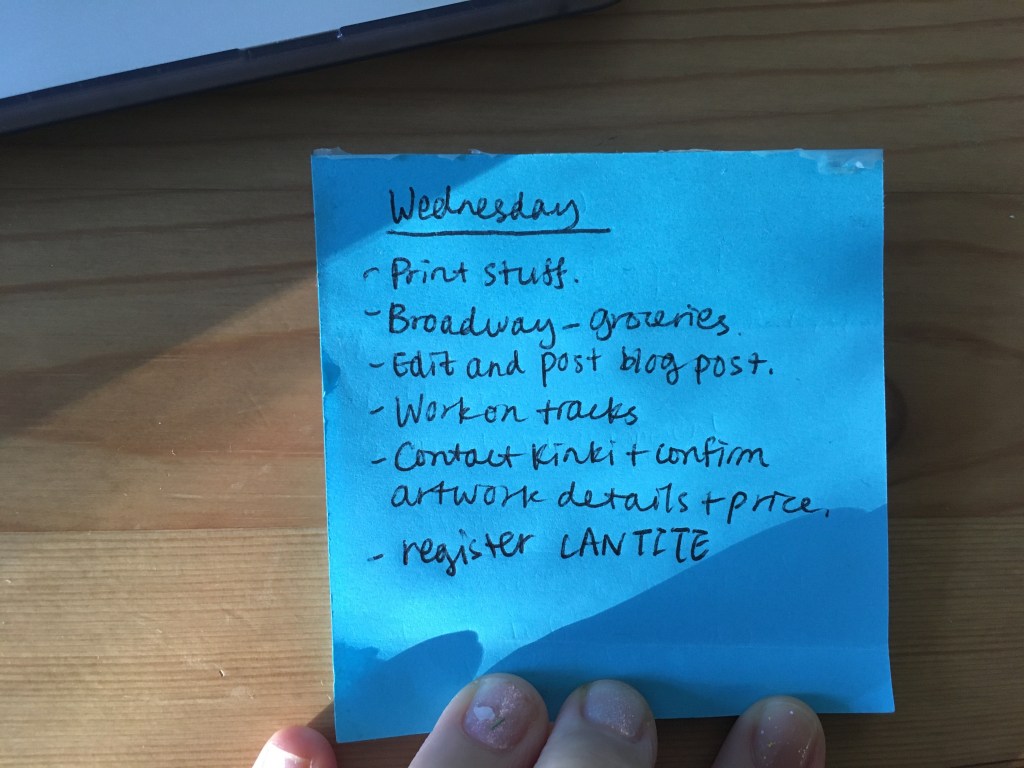 Wednesday
- Print stuff.
- Broadway - groceries.
- Edit and post blog post.
- Work on tracks
- Contact Kinki + confirm
artwork details + price.
- register LANTITE